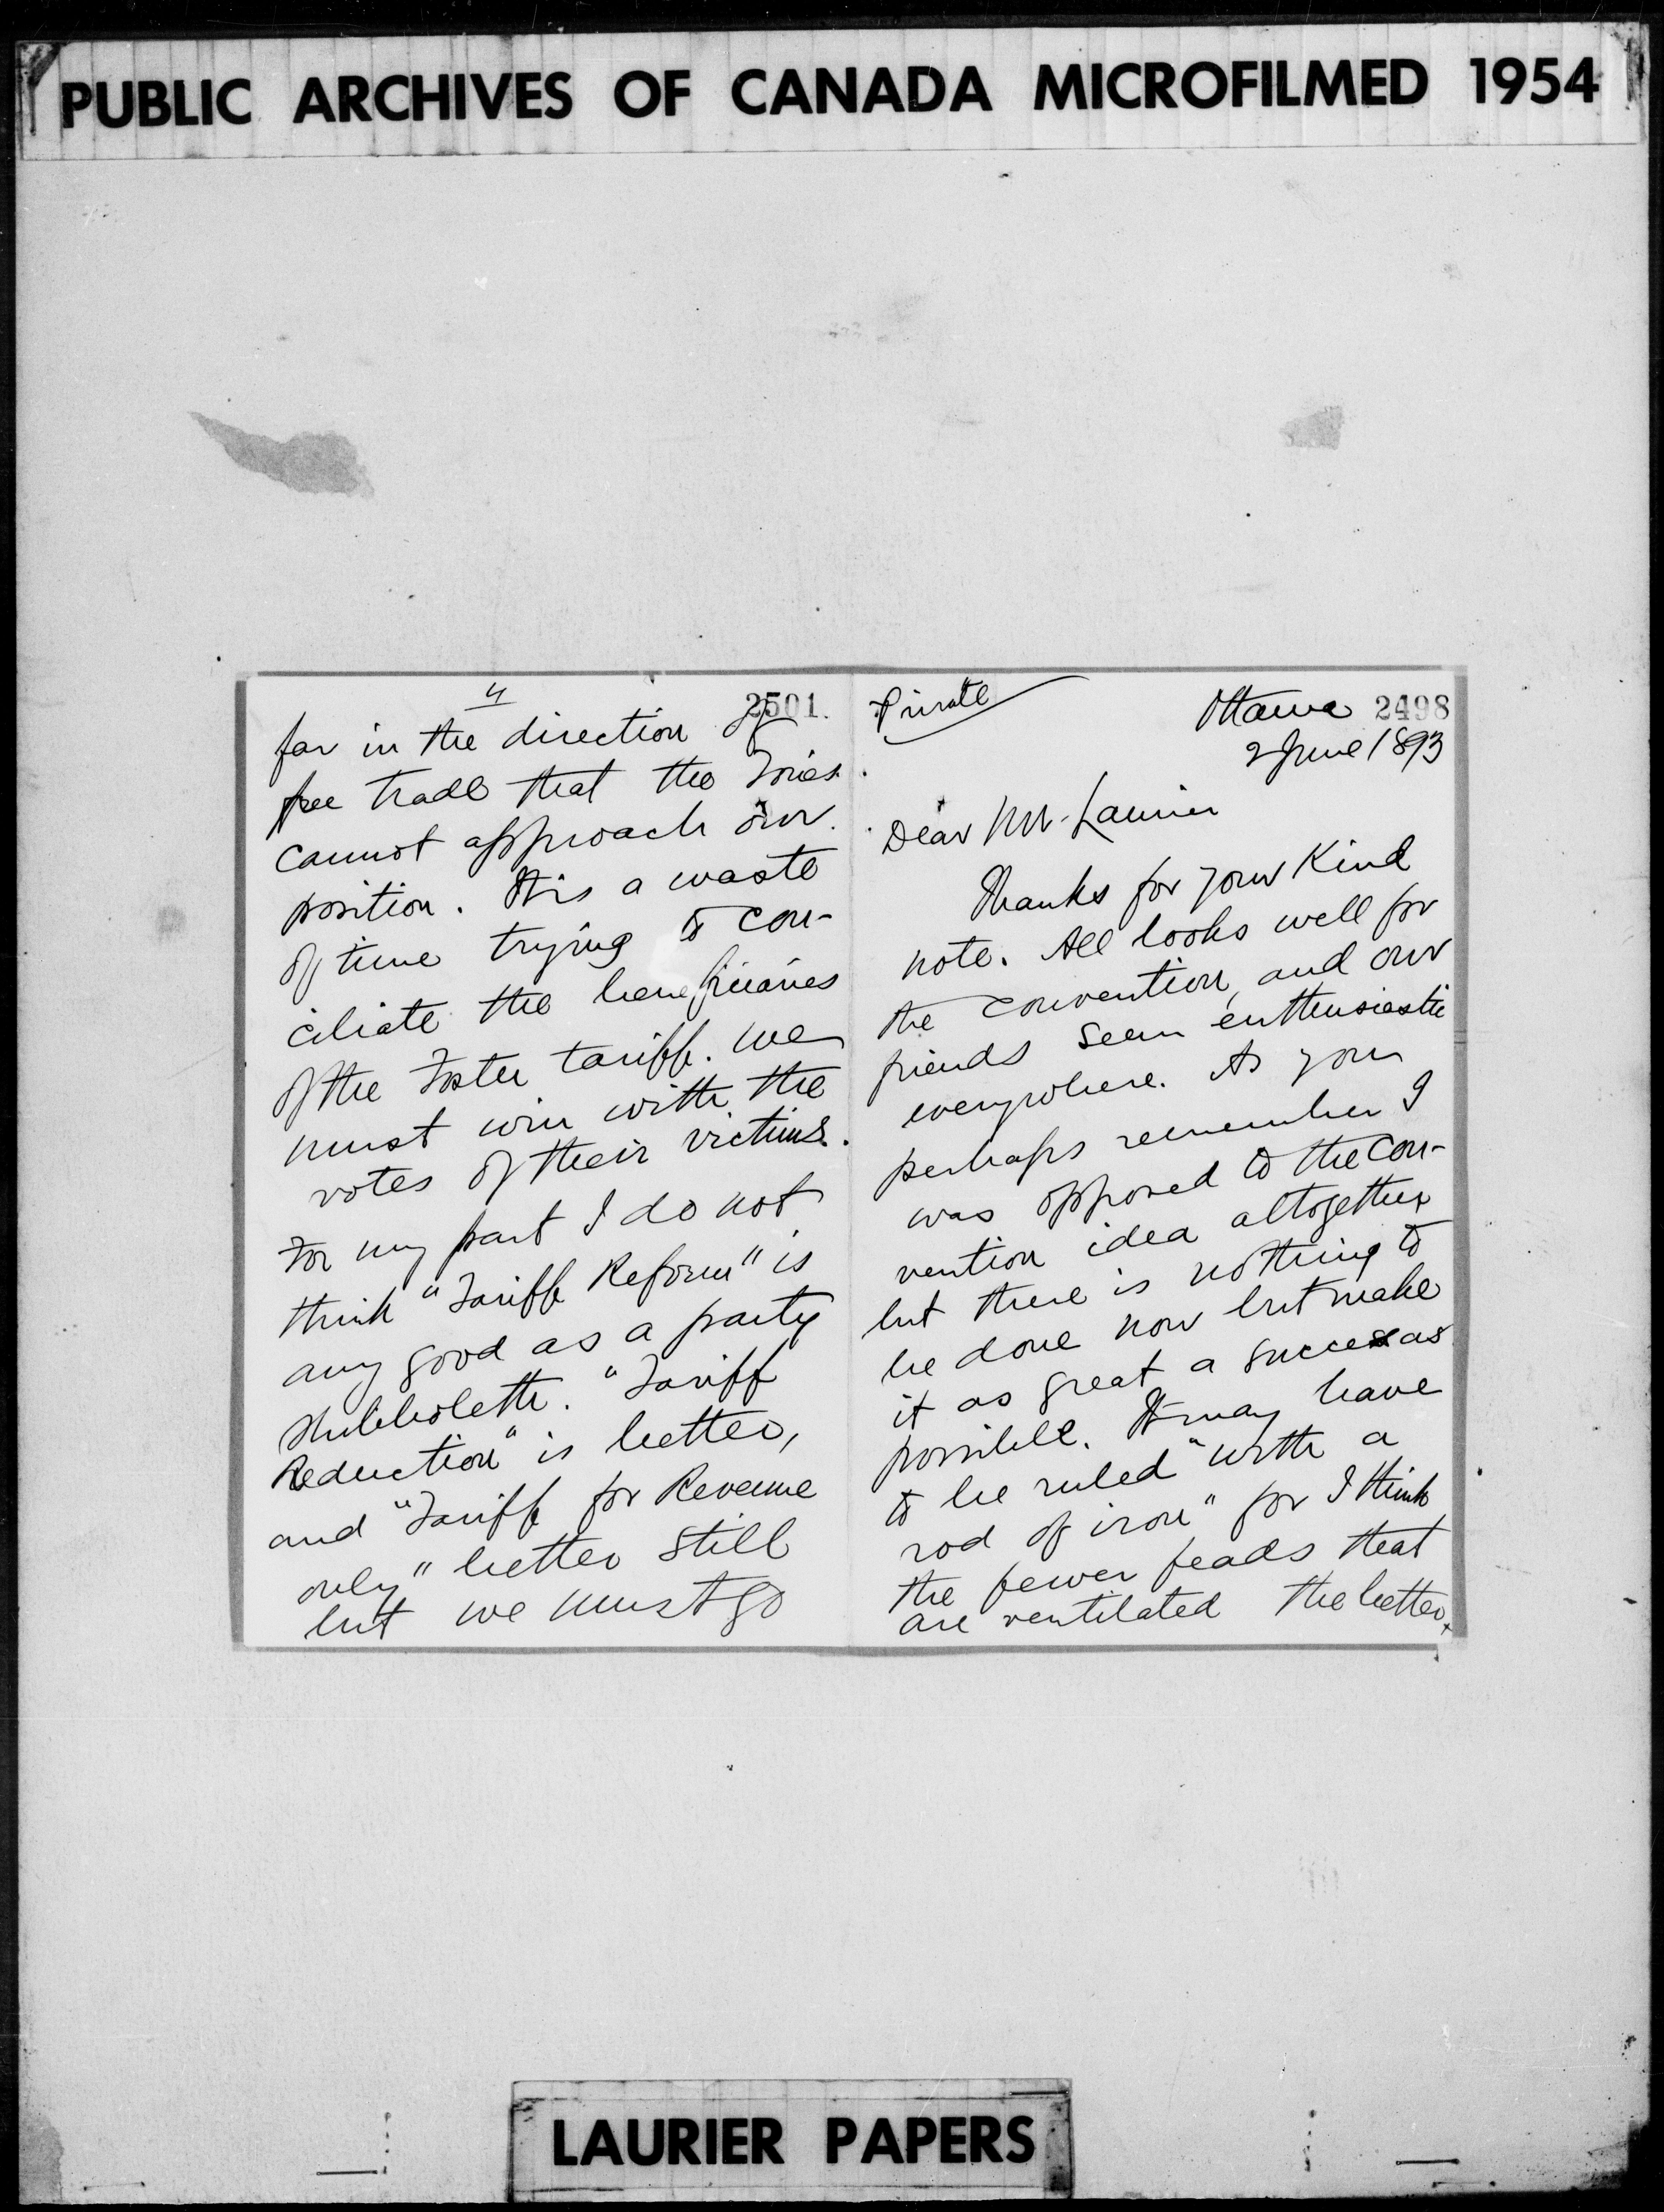 PUBLIC ARCHIVES OF CANADA MICROFILMED 1954
4
2501.
far in the direction of
free trade that the Tories
cannot approach our
position. It is a waste
of time trying to con-
ciliate the beneficiaries
of the Foster tariff. We
must win with the
votes of their victims.
For my part I do not
think "Tariff Reform" is
any good as a party
Shibboleth. "Tariff
Reduction" is better,
and "Tariff for Revenue
only" better still
but we must go
Private
Ottawa 2498
2 June 1893
Dear Mr. Laurier
Thanks for your kind
note. All looks well for
the convention, and our
friends seem enthusiastic
everywhere. As you
perhaps remember I
was opposed to the con-
vention idea altogether
but there is nothing to
be done now but make
it as great a success as
possible. It may have
to be ruled "with a
rod of iron" for I think
the fewer feads that
are ventilated the better.
LAURIER PAPERS